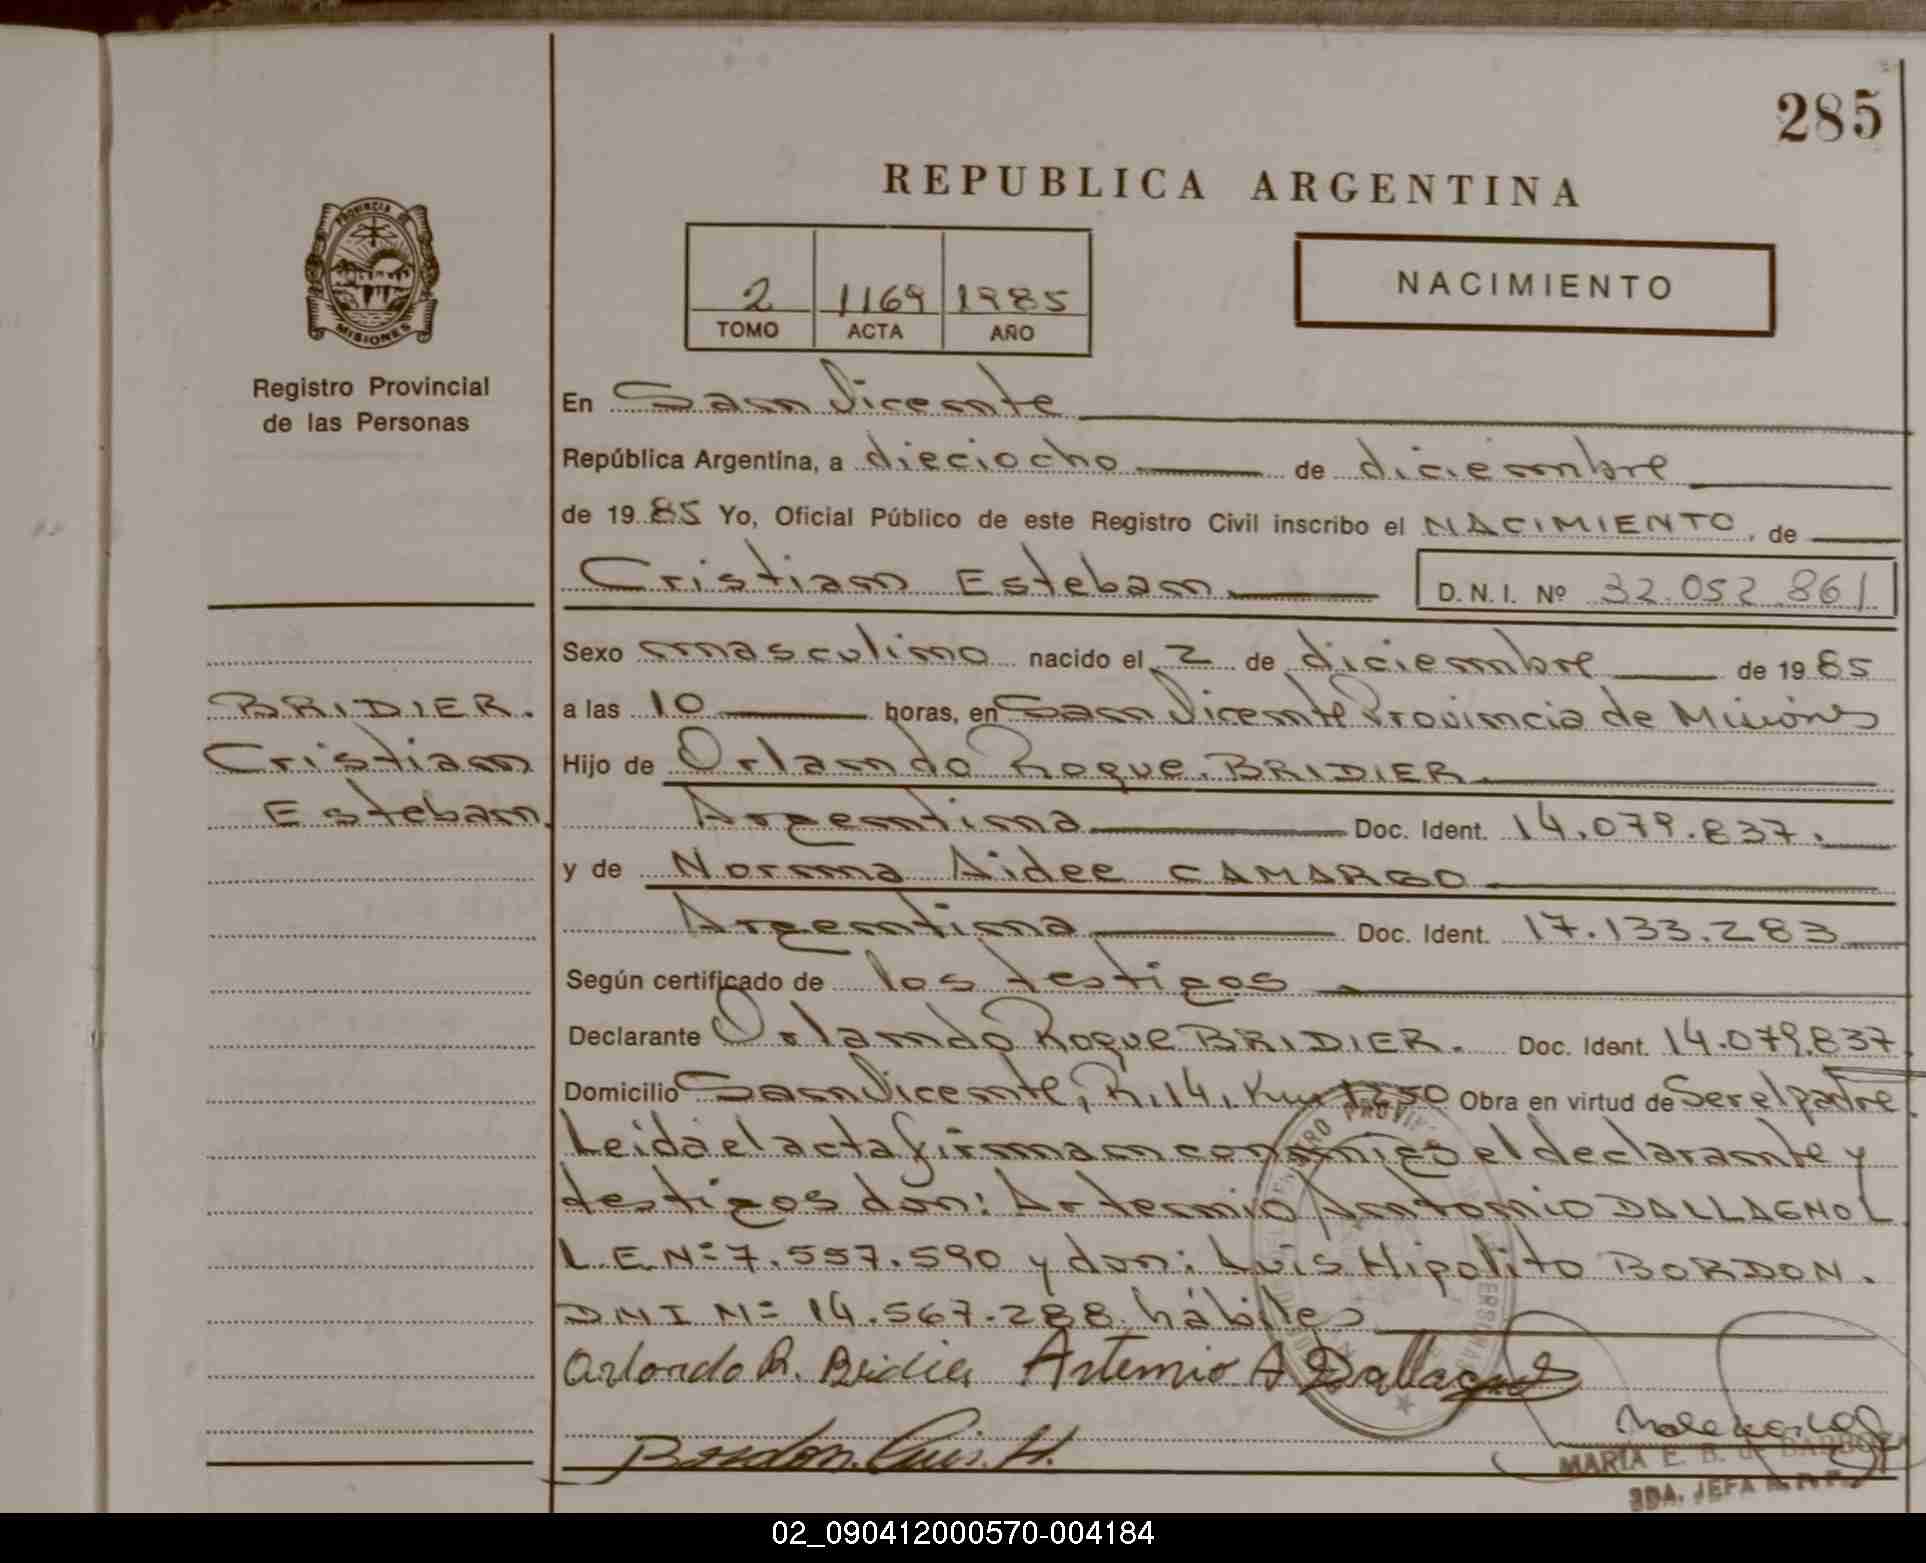 285
REPUBLICA ARGENTINA
PROVINCIA DE
MISIONES
Registro Provincial
de las Personas
2 1169 1985
TOMO ACTA AÑO
NACIMIENTO
En San Vicente
República Argentina, a dieciocho de diciembre
de 1985 Yo, Oficial Público de este Registro Civil inscribo el NACIMIENTO, de
Cristian Esteban D.N.I. Nº 32.052.861
Sexo masculino nacido el 2 de diciembre de 1985
BRIDIER.
Cristian
Esteban.
a las 10 horas, en San Vicente Provincia de Misiones
Hijo de Orlando Roque. BRIDIER
Argentina Doc. Ident. 14.079.837.
y de Norma Aidee CAMARGO
Argentina Doc. Ident. 17.133.283
Según certificado de los testigos
Declarante Orlando Roque BRIDIER. Doc. Ident. 14.079.837
Domicilio San Vicente, R.14, Km 1250 Obra en virtud de Ser el padre.
Leida el acta firman conmigo el declarante y
testigos don: Artemio Antonio DALLAGNOL
L.E.Nº 7.557.590 y don: Luis Hipolito BORDON.
DNI Nº 14.567.288. hábiles
Orlando R. Bridier Artemio A Dallagnol
Bordon. Luis. H.
MARIA E. B. de
JEFA
02_090412000570-004184